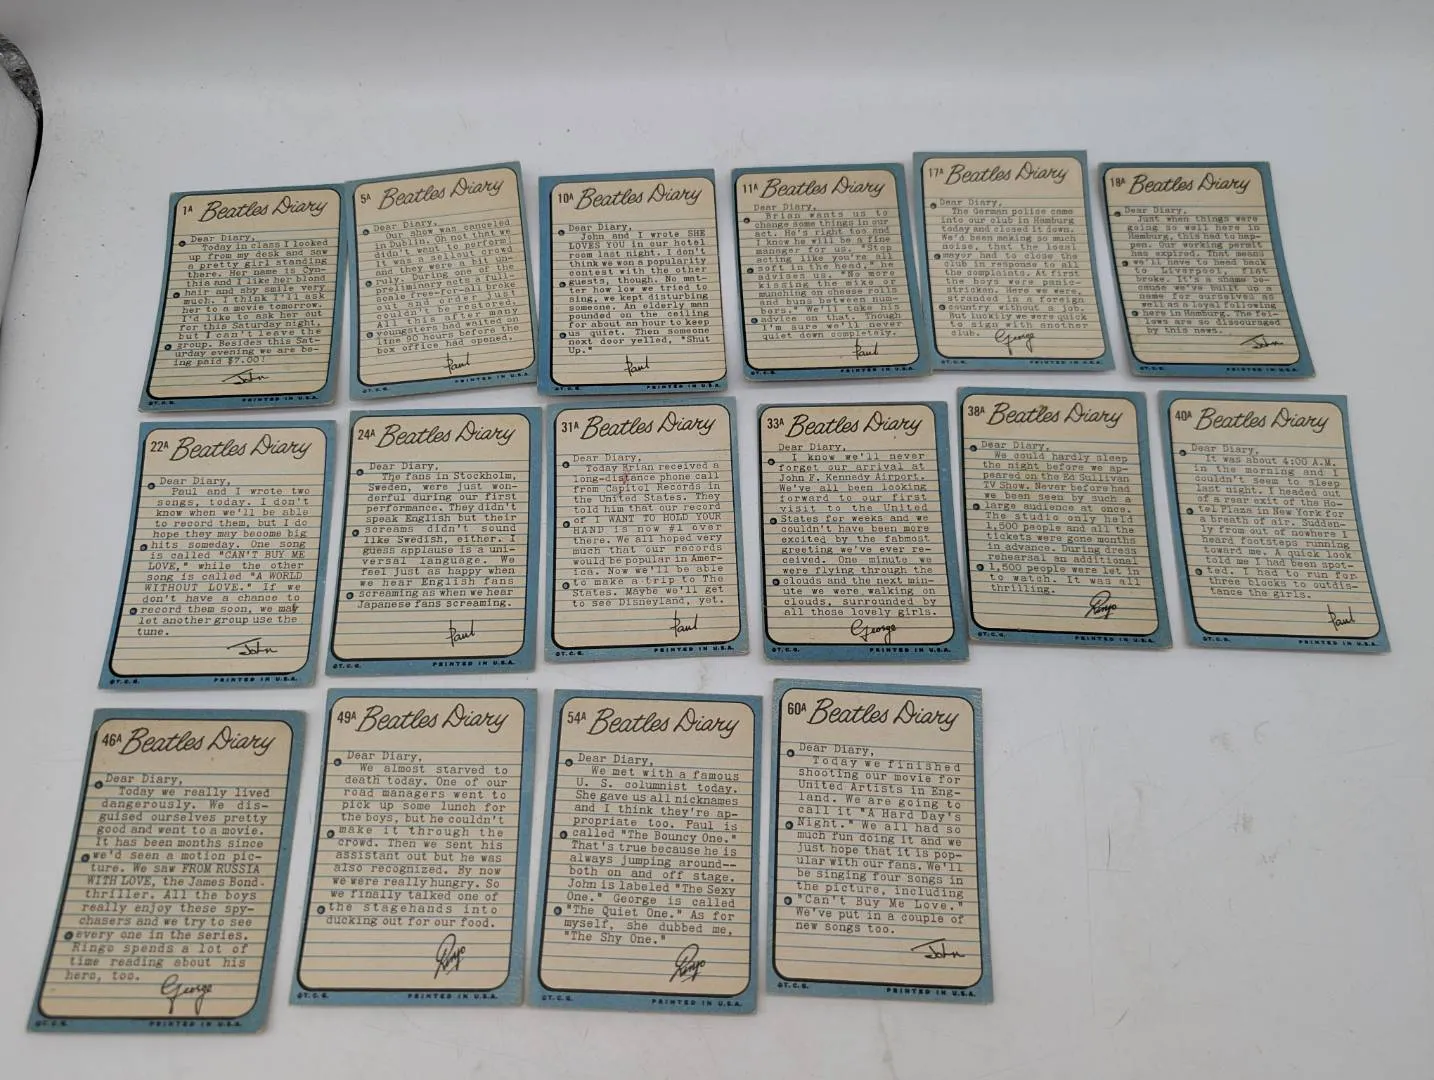 1A Beatles Diary
Dear Diary,
Today in class I looked
up from my desk and saw
a pretty girl standing
there. Her name is Cyn-
thia and I like her blond
hair and shy smile very
much. I think I'll ask
her to a movie tomorrow.
I'd like to ask her out
for this Saturday night,
but I can't leave the
group. Besides this Sat-
urday evening we are be-
ing paid $7.00!
John
©T.C.G. PRINTED IN U.S.A.
5A Beatles Diary
Dear Diary,
Our show was canceled
in Dublin. Oh not that we
didn't want to perform!
It was a sellout crowd
and they were a bit un-
ruly. During one of the
preliminary acts a full-
scale free-for-all broke
out and order just
couldn't be restored.
All this after many
youngsters had waited on
line 90 hours before the
box office had opened.
Paul
©T.C.G. PRINTED IN U.S.A.
10A Beatles Diary
Dear Diary,
John and I wrote SHE
LOVES YOU in our hotel
room last night. I don't
think we won a popularity
contest with the other
guests, though. No mat-
ter how low we tried to
sing, we kept disturbing
someone. An elderly man
pounded on the ceiling
for about an hour to keep
us quiet. Then someone
next door yelled, "Shut
Up."
Paul
©T.C.G. PRINTED IN U.S.A.
11A Beatles Diary
Dear Diary,
Brian wants us to
change some things in our
act. He's right too and
I know he will be a fine
manager for us. "Stop
acting like you're all
soft in the head," he
advises us. "No more
kissing the mike or
munching on cheese rolls
and buns between num-
bers." We'll take his
advice on that. Though
I'm sure we'll never
quiet down completely.
Paul
©T.C.G. PRINTED IN U.S.A.
17A Beatles Diary
Dear Diary,
The German police came
into our club in Hamburg
today and closed it down.
We'd been making so much
noise, that the local
mayor had to close the
club in response to all
the complaints. At first
the boys were panic-
stricken. Here we were,
stranded in a foreign
country without a job.
But luckily we were quick
to sign with another
club.
George
©T.C.G. PRINTED IN U.S.A.
18A Beatles Diary
Dear Diary,
Just when things were
going so well here in
Hamburg, this had to hap-
pen. Our working permit
has expired. That means
we'll have to head back
to Liverpool, flat
broke. It's a shame be-
cause we've built up a
name for ourselves as
well as a loyal following
here in Hamburg. The fel-
lows are so discouraged
by this news.
John
©T.C.G. PRINTED IN U.S.A.
22A Beatles Diary
Dear Diary,
Paul and I wrote two
songs, today. I don't
know when we'll be able
to record them, but I do
hope they may become big
hits someday. One song
is called "CAN'T BUY ME
LOVE," while the other
song is called "A WORLD
WITHOUT LOVE." If we
don't have a chance to
record them soon, we may
let another group use the
tune.
John
©T.C.G. PRINTED IN U.S.A.
24A Beatles Diary
Dear Diary,
The fans in Stockholm,
Sweden, were just won-
derful during our first
performance. They didn't
speak English but their
screams didn't sound
like Swedish, either. I
guess applause is a uni-
versal language. We
feel just as happy when
we hear English fans
screaming as when we hear
Japanese fans screaming.
Paul
©T.C.G. PRINTED IN U.S.A.
31A Beatles Diary
Dear Diary,
Today Brian received a
long-distance phone call
from Capitol Records in
the United States. They
told him that our record
of I WANT TO HOLD YOUR
HAND is now #1 over
there. We all hoped very
much that our records
would be popular in Amer-
ica. Now we'll be able
to make a trip to The
States. Maybe we'll get
to see Disneyland, yet.
Paul
©T.C.G. PRINTED IN U.S.A.
33A Beatles Diary
Dear Diary,
I know we'll never
forget our arrival at
John F. Kennedy Airport.
We've all been looking
forward to our first
visit to the United
States for weeks and we
couldn't have been more
excited by the fabmost
greeting we've ever re-
ceived. One minute we
were flying through the
clouds and the next min-
ute we were walking on
clouds, surrounded by
all those lovely girls.
George
©T.C.G. PRINTED IN U.S.A.
38A Beatles Diary
Dear Diary,
We could hardly sleep
the night before we ap-
peared on the Ed Sullivan
TV Show. Never before had
we been seen by such a
large audience at once.
The studio only held
1,500 people and all the
tickets were gone months
in advance. During dress
rehearsal an additional
1,500 people were let in
to watch. It was all
thrilling.
Ringo
©T.C.G. PRINTED IN U.S.A.
40A Beatles Diary
Dear Diary,
It was about 4:00 A.M.
in the morning and I
couldn't seem to sleep
last night. I headed out
of a rear exit of the Ho-
tel Plaza in New York for
a breath of air. Sudden-
ly from out of nowhere I
heard footsteps running
toward me. A quick look
told me I had been spot-
ted. I had to run for
three blocks to outdis-
tance the girls.
Paul
©T.C.G. PRINTED IN U.S.A.
46A Beatles Diary
Dear Diary,
Today we really lived
dangerously. We dis-
guised ourselves pretty
good and went to a movie.
It has been months since
we'd seen a motion pic-
ture. We saw FROM RUSSIA
WITH LOVE, the James Bond
thriller. All the boys
really enjoy these spy-
chasers and we try to see
every one in the series.
Ringo spends a lot of
time reading about his
hero, too.
George
©T.C.G. PRINTED IN U.S.A.
49A Beatles Diary
Dear Diary,
We almost starved to
death today. One of our
road managers went to
pick up some lunch for
the boys, but he couldn't
make it through the
crowd. Then we sent his
assistant out but he was
also recognized. By now
we were really hungry. So
we finally talked one of
the stagehands into
ducking out for our food.
Ringo
©T.C.G. PRINTED IN U.S.A.
54A Beatles Diary
Dear Diary,
We met with a famous
U. S. columnist today.
She gave us all nicknames
and I think they're ap-
propriate too. Paul is
called "The Bouncy One."
That's true because he is
always jumping around--
both on and off stage.
John is labeled "The Sexy
One." George is called
"The Quiet One." As for
myself, she dubbed me,
"The Shy One."
Ringo
©T.C.G. PRINTED IN U.S.A.
60A Beatles Diary
Dear Diary,
Today we finished
shooting our movie for
United Artists in Eng-
land. We are going to
call it "A Hard Day's
Night." We all had so
much fun doing it and we
just hope that it is pop-
ular with our fans. We'll
be singing four songs in
the picture, including
"Can't Buy Me Love."
We've put in a couple of
new songs too.
John
©T.C.G. PRINTED IN U.S.A.